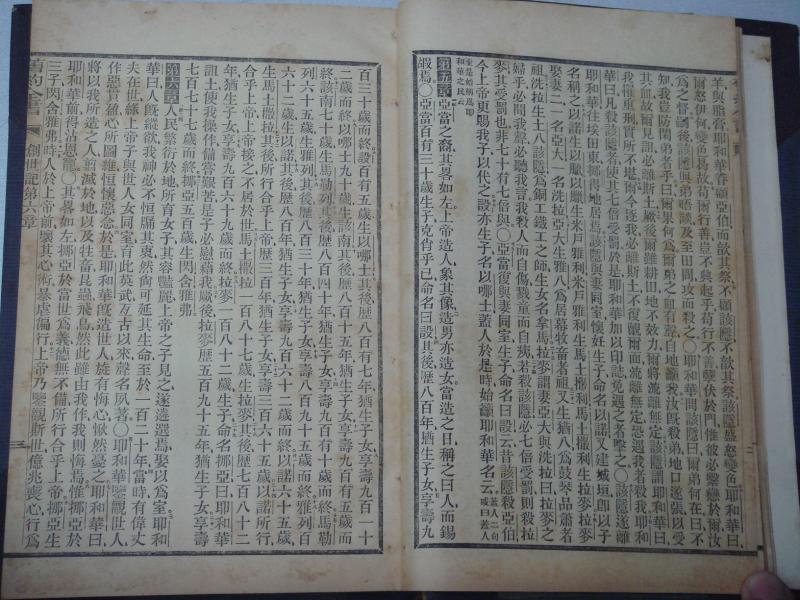 羊與脂嘗耶和華眷顧亞伯而歆其祭不顧該隱不歆其祭該隱盛怒變色耶和華曰
爾怒伊何變色曷故苟爾行善豈不興起乎苟行不善孽伏於門惟彼必繫戀於爾汝
爲之督焉後該隱與弟晤談及至田間攻而殺之〇耶和華問該隱曰爾弟何在曰不
知我豈防閑弟者乎曰爾果何爲爾弟之血有聲自地籲我汝旣殺弟地口遂張以受
其血故爾見詛必離斯土厥後雖耕田地不效力爾將流離無定該隱謂耶和華曰
我罹重刑實所不堪爾今逐我必離斯土不復覿爾面流離無定恐遇我者殺我耶和
華曰凡殺該隱者使其七倍受罰於是耶和華加以印誌免遇之者擊之〇該隱遂離
耶和華往埃田東挪得地居焉該隱與妻同室懷妊生子命名以諾又建城垣卽以子
名稱之以諾生以臘以臘生米戶雅利米戶雅利生馬土撒利馬土撒利生拉麥拉麥
娶妻二一名亞大一名洗拉亞大生雅八爲居幕牧畜者祖又生猶八爲鼓琴品簫者
祖洗拉生土八該隱爲銅工鐵工之師生女名拿馬拉麥謂妻亞大與洗拉曰拉麥之
婦乎必聞我言聲必聽我言我殺人而自傷戮童而自病若殺該隱必七倍受罰則殺拉
麥其受罰也非七十有七倍與〇亞當復與妻同室生子命名曰設云昔該隱殺亞伯
今上帝更賜我子以代之設亦生子名以哪士蓋人於是時始籲耶和華名云
第五章亞當之裔其畧如左上帝造人象其像造男亦造女當造之日稱之曰人而錫
嘏焉〇亞當百有三十歲生子克肖乎己命名曰設其後歷八百年猶生子女享壽九
百三十歲而終設百有五歲生以哪士其後歷八百有七年猶生子女享壽九百一十
二歲而終以哪士九十歲生該南其後歷八百十五年猶生子女享壽九百有五歲而
終該南七十歲生馬勒列其後歷八百四十年猶生子女享壽九百有十歲而終馬勒
列六十五歲生雅列其後歷八百三十年猶生子女享壽八百九十五歲而終雅列百
六十二歲生以諾其後歷八百年猶生子女享壽九百六十二歲而終以諾六十五歲
生馬土撒拉其所行合乎上帝歷三百年猶生子女享壽三百六十五歲以諾所行
合乎上帝上帝接之不居於世馬土撒拉一百八十七歲生拉麥其後歷七百八十二
年猶生子女享壽九百六十九歲而終拉麥一百八十二歲生子命名挪亞曰耶和華
詛土使我操作備嘗艱苦是子必慰藉我厥後拉麥歷五百九十五年猶生子女享壽
七百七十七歲而終挪亞五百歲生閃含雅弗
第六章人民繁衍於地所育女子其容豔麗上帝之子見之遂遴選焉娶以爲室耶和
華曰人旣縱欲我神必不恒牖其衷然尚可延其生命至於一百二十年當時有偉丈
夫在世緣上帝子與世人女同室育此英武亙古以來聲名夙著〇耶和華鑒觀世人
作惡貫盈心所圖維恒懷惡念於是耶和華旣造世人旋有悔心愀然憂之耶和華曰
將以我所造之人翦滅於地以及牲畜昆蟲飛鳥然此雖由我作我則悔焉惟挪亞於
耶和華前得沾恩寵〇其畧如左挪亞於當世爲義德無不備所行合乎上帝挪亞生
三子閃含雅弗時人於上帝前壞其心術暴虐徧行上帝乃鑒觀斯世億兆喪心行爲
舊約全書
創世記第六章
三